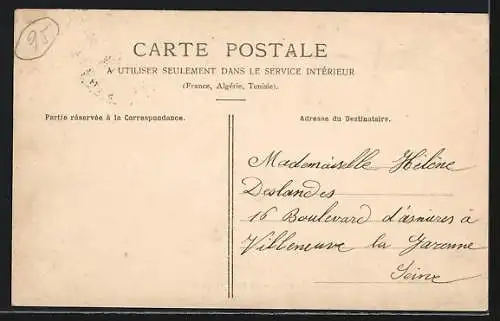 95
CARTE POSTALE
A UTILISER SEULEMENT DANS LE SERVICE INTÉRIEUR
(France, Algérie, Tunisie).
Partie réservée à la Correspondance.
Adresse du Destinataire.
Mademoiselle Hélène
Deslandes
16 Boulevard d'asnières à
Villeneuve la Garenne
Seine